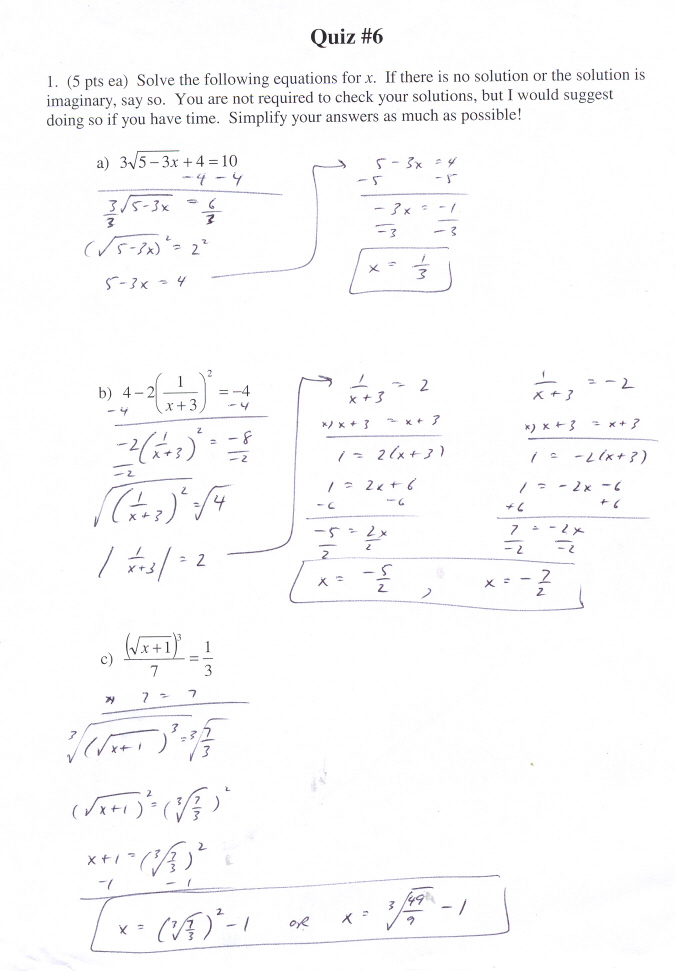 Quiz #6
1. (5 pts ea) Solve the following equations for x. If there is no solution or the solution is
imaginary, say so. You are not required to check your solutions, but I would suggest
doing so if you have time. Simplify your answers as much as possible!
a) 3√(5 − 3x) + 4 = 10
−4 −4
3√(5-3x)/3 = 6/3
(√(5-3x))² = 2²
5-3x = 4
5 - 3x = 4
-5 -5
-3x/-3 = -1/-3
x = 1/3
b) 4 − 2(1/(x+3))² = −4
−4 −4
-2(1/(x+3))²/-2 = -8/-2
√(1/(x+3))² = √4
|1/(x+3)| = 2
1/(x+3) = 2
x) x+3 = x+3
1 = 2(x+3)
1 = 2x+6
-6 -6
-5/2 = 2x/2
x = -5/2 ,
1/(x+3) = -2
x) x+3 = x+3
1 = -2(x+3)
1 = -2x -6
+6 +6
7/-2 = -2x/-2
x = -7/2
c) (√(x+1))³/7 = 1/3
x) 7 = 7
³√(√(x+1))³ = ³√(7/3)
(√(x+1))² = (³√(7/3))²
x+1 = (³√(7/3))²
-1 -1
x = (³√(7/3))² -1 or x = ³√(49/9) - 1